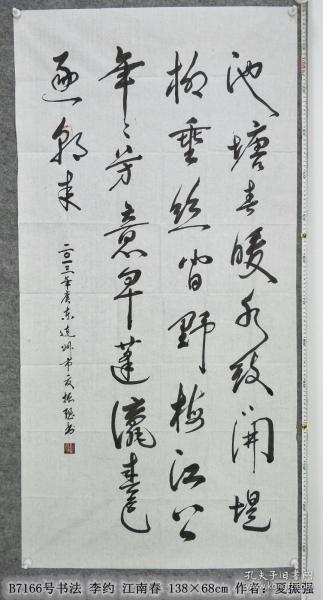 池塘春暖水纹開堤
柳垂丝间野梅江上
年々芳意早蓬瀛春色
逐潮来
二〇一三年广东连州市夏振强书
B7166号书法 李约 江南春 138×68cm 作者:夏振强
孔夫子旧书网